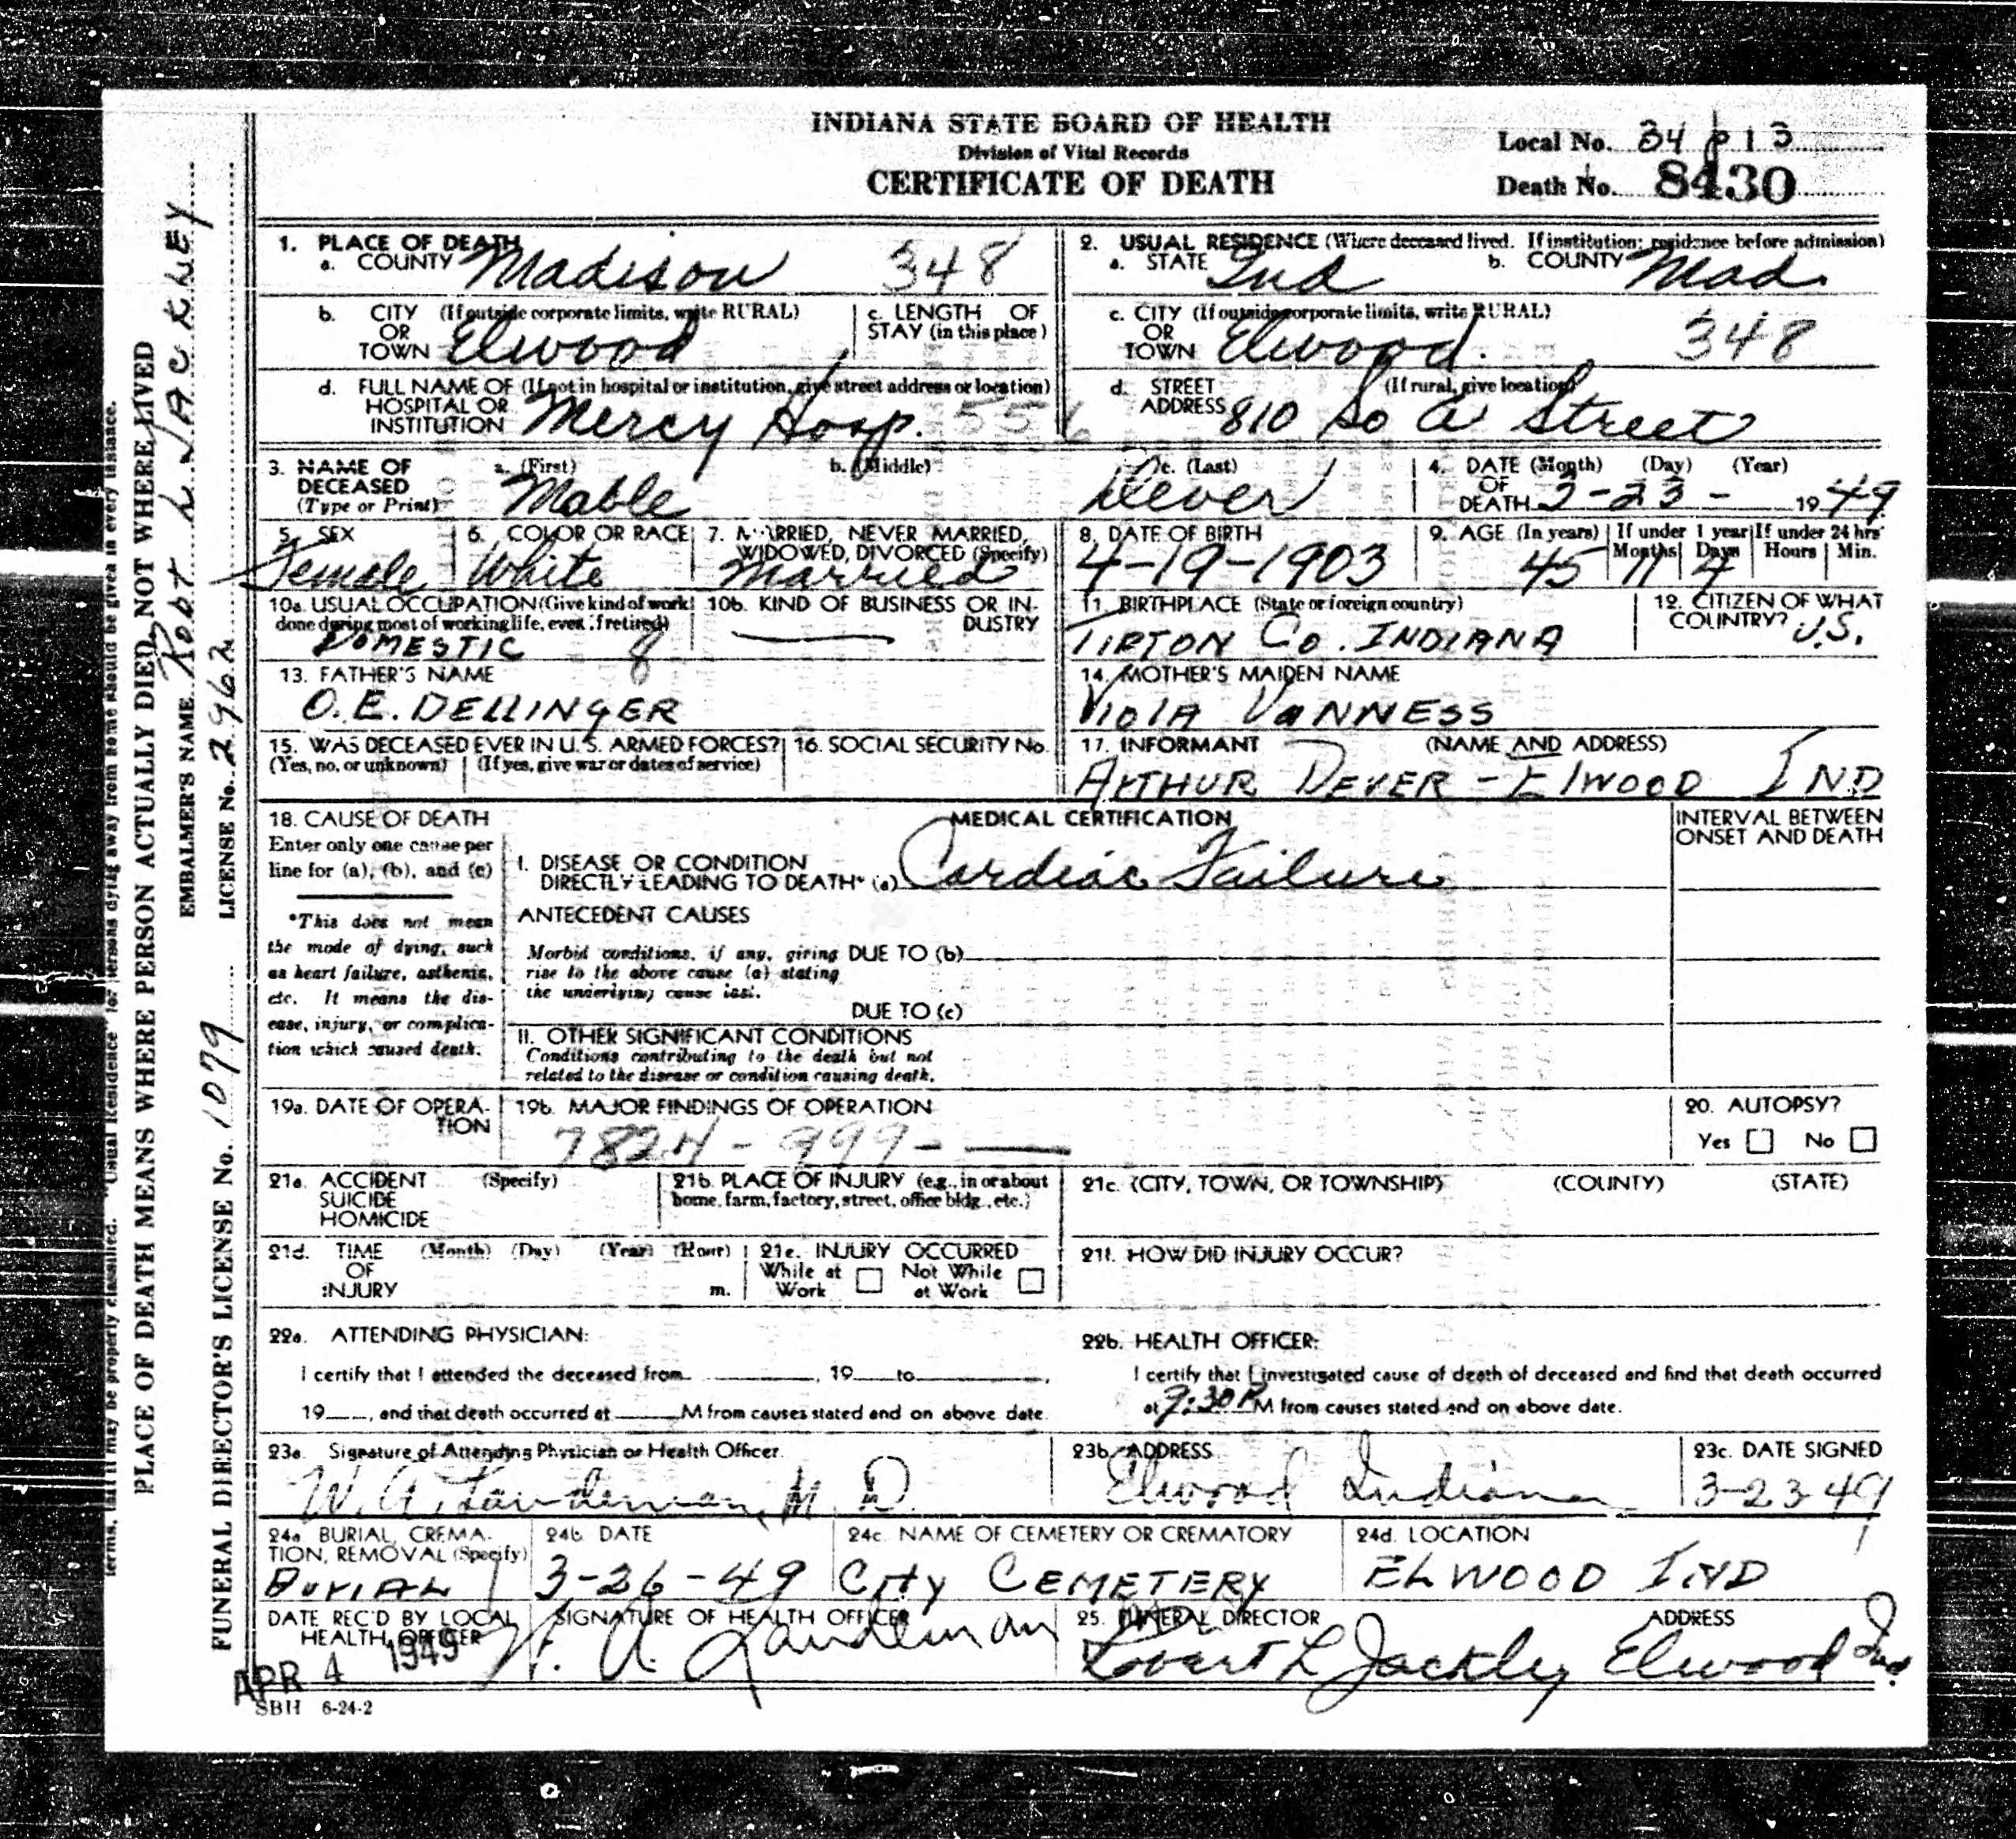 INDIANA STATE BOARD OF HEALTH
Division of Vital Records
CERTIFICATE OF DEATH
Local No. 34 p 13
Death No. 8430
1. PLACE OF DEATH
a. COUNTY Madison 348
2. USUAL RESIDENCE (Where deceased lived. If institution: residence before admission)
a. STATE Ind b. COUNTY Mad.
b. CITY (If outside corporate limits, write RURAL)
OR
TOWN Elwood
c. LENGTH OF
STAY (in this place)
c. CITY (If outside corporate limits, write RURAL)
OR
TOWN Elwood. 348
d. FULL NAME OF (If not in hospital or institution, give street address or location)
HOSPITAL OR
INSTITUTION Mercy Hosp. 556
d. STREET (If rural, give location)
ADDRESS 810 So A Street
3. NAME OF
DECEASED
(Type or Print)
a. (First) b. (Middle) c. (Last)
Mable Dever
4. DATE (Month) (Day) (Year)
OF
DEATH 3-23- 1949
5. SEX
Female
6. COLOR OR RACE
White
7. MARRIED, NEVER MARRIED,
WIDOWED, DIVORCED (Specify)
Married
8. DATE OF BIRTH
4-19-1903
9. AGE (In years) If under 1 year If under 24 hrs
Months Days Hours Min.
45 11 4
10a. USUAL OCCUPATION (Give kind of work
done during most of working life, even if retired)
DOMESTIC 8
10b. KIND OF BUSINESS OR IN-
DUSTRY
11. BIRTHPLACE (State or foreign country)
TIPTON CO. INDIANA
12. CITIZEN OF WHAT
COUNTRY? U.S.
13. FATHER'S NAME
O. E. DELLINGER
14. MOTHER'S MAIDEN NAME
VIOLA VANNESS
15. WAS DECEASED EVER IN U. S. ARMED FORCES?
(Yes, no, or unknown) (If yes, give war or dates of service)
16. SOCIAL SECURITY No.
17. INFORMANT (NAME AND ADDRESS)
ARTHUR DEVER - ELWOOD IND
18. CAUSE OF DEATH
Enter only one cause per
line for (a), (b), and (c)
*This does not mean
the mode of dying, such
as heart failure, asthenia,
etc. It means the dis-
ease, injury, or complica-
tion which caused death.
MEDICAL CERTIFICATION
INTERVAL BETWEEN
ONSET AND DEATH
I. DISEASE OR CONDITION
DIRECTLY LEADING TO DEATH* (a) Cardiac Failure
ANTECEDENT CAUSES
Morbid conditions, if any, giving DUE TO (b)
rise to the above cause (a) stating
the underlying cause last.
DUE TO (c)
II. OTHER SIGNIFICANT CONDITIONS
Conditions contributing to the death but not
related to the disease or condition causing death.
19a. DATE OF OPERA-
TION
19b. MAJOR FINDINGS OF OPERATION
7824 - 999 -
20. AUTOPSY?
Yes No
21a. ACCIDENT (Specify)
SUICIDE
HOMICIDE
21b. PLACE OF INJURY (e.g., in or about
home, farm, factory, street, office bldg., etc.)
21c. (CITY, TOWN, OR TOWNSHIP) (COUNTY) (STATE)
21d. TIME (Month) (Day) (Year) (Hour)
OF
INJURY m.
21e. INJURY OCCURRED
While at Not While
Work at Work
21f. HOW DID INJURY OCCUR?
22a. ATTENDING PHYSICIAN:
I certify that I attended the deceased from , 19 to ,
19 , and that death occurred at M from causes stated and on above date.
22b. HEALTH OFFICER:
I certify that I investigated cause of death of deceased and find that death occurred
at 9:30 P M from causes stated and on above date.
23a. Signature of Attending Physician or Health Officer.
W. A. Laudeman, M. D.
23b. ADDRESS
Elwood Indiana
23c. DATE SIGNED
3-23-49
24a BURIAL, CREMA-
TION, REMOVAL (Specify)
BURIAL
24b DATE
3-26-49
24c. NAME OF CEMETERY OR CREMATORY
City CEMETERY
24d. LOCATION
ELWOOD IND
DATE REC'D BY LOCAL
HEALTH OFFICER
APR 4 1949
SIGNATURE OF HEALTH OFFICER
W. A. Laudeman
25. FUNERAL DIRECTOR ADDRESS
Robert L Jackley Elwood Ind.
SBH 6-24-2
terms, that it may be properly classified. "Usual Residence" for persons dying away from home should be given in every instance.
PLACE OF DEATH MEANS WHERE PERSON ACTUALLY DIED, NOT WHERE LIVED
EMBALMER'S NAME Robt L. JACKLEY
FUNERAL DIRECTOR'S LICENSE No. 1079 LICENSE No. 2962